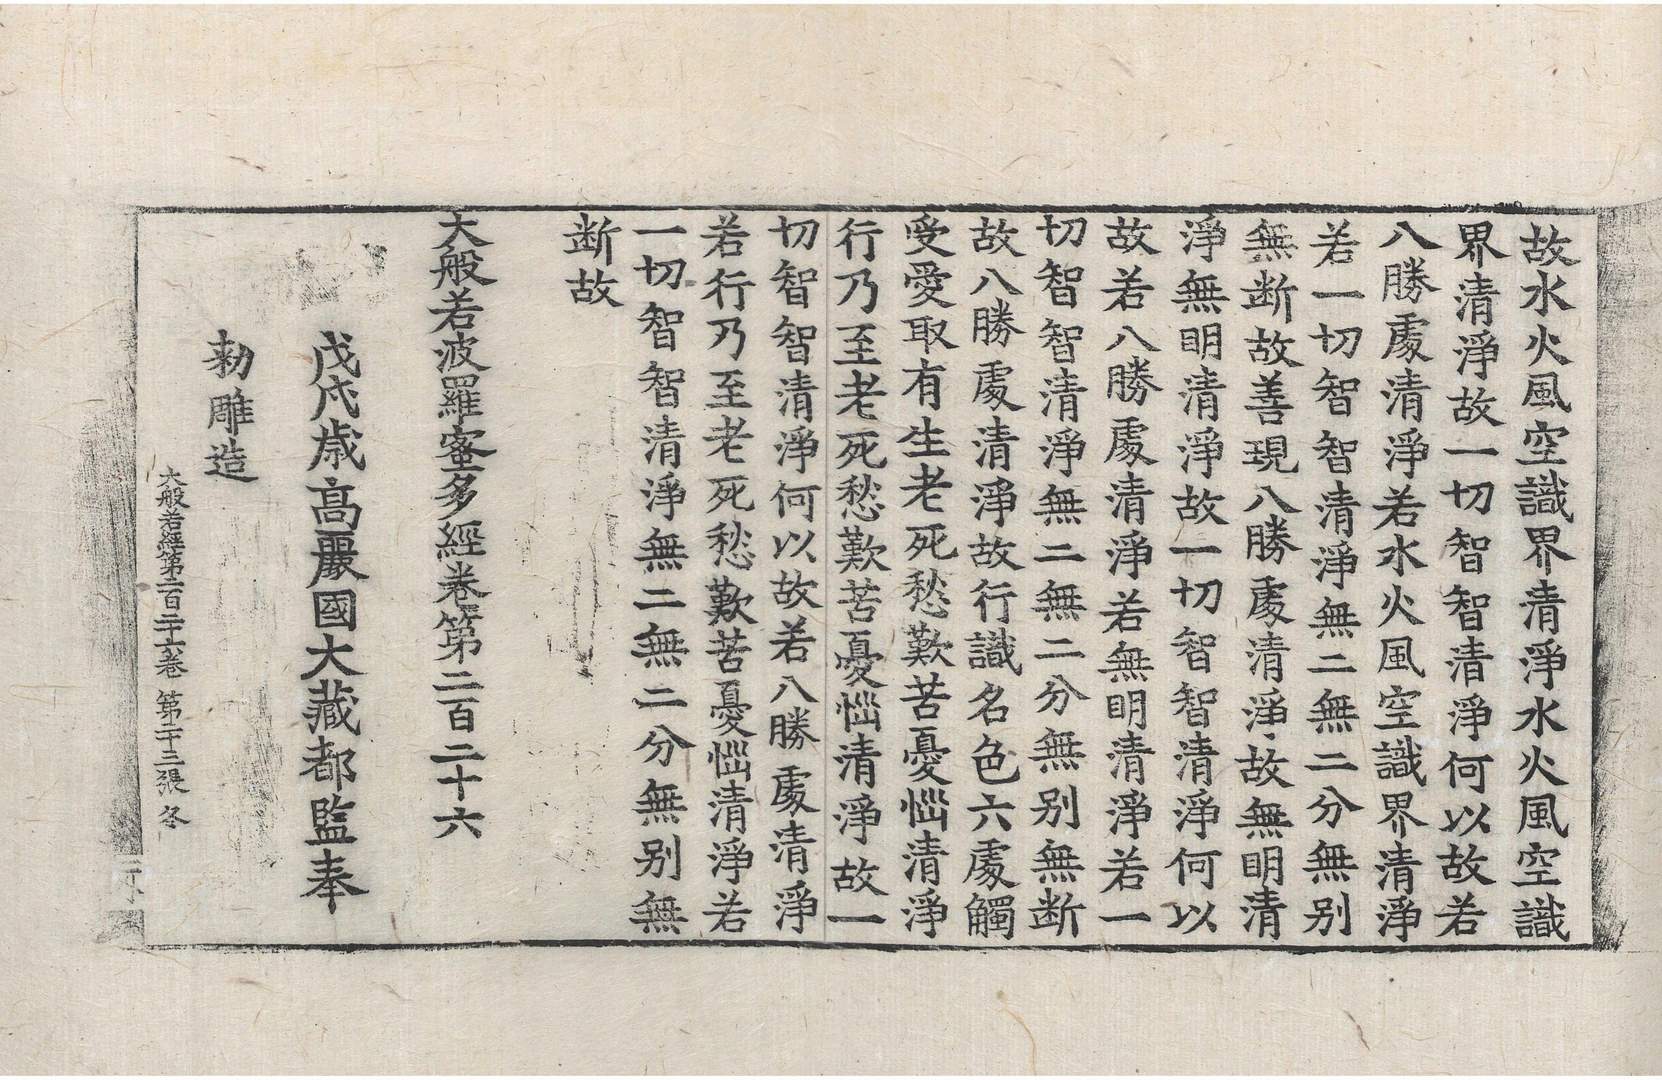 故水火風空識界清淨水火風空識
界清淨故一切智智清淨何以故若
八勝處清淨若水火風空識界清淨
若一切智智清淨無二無二分無別
無断故善現八勝處清淨故無明清
淨無明清淨故一切智智清淨何以
故若八勝處清淨若無明清淨若一
切智智清淨無二無二分無別無断
故八勝處清淨故行識名色六處觸
受愛取有生老死愁歎苦憂惱清淨
行乃至老死愁歎苦憂惱清淨故一
切智智清淨何以故若八勝處清淨
若行乃至老死愁歎苦憂惱清淨若
一切智智清淨無二無二分無別無
断故
大般若波羅蜜多經卷第二百二十六
戊戌歲高麗國大藏都監奉
勑雕造
大般若經第二百二十六卷 第二十三張 冬